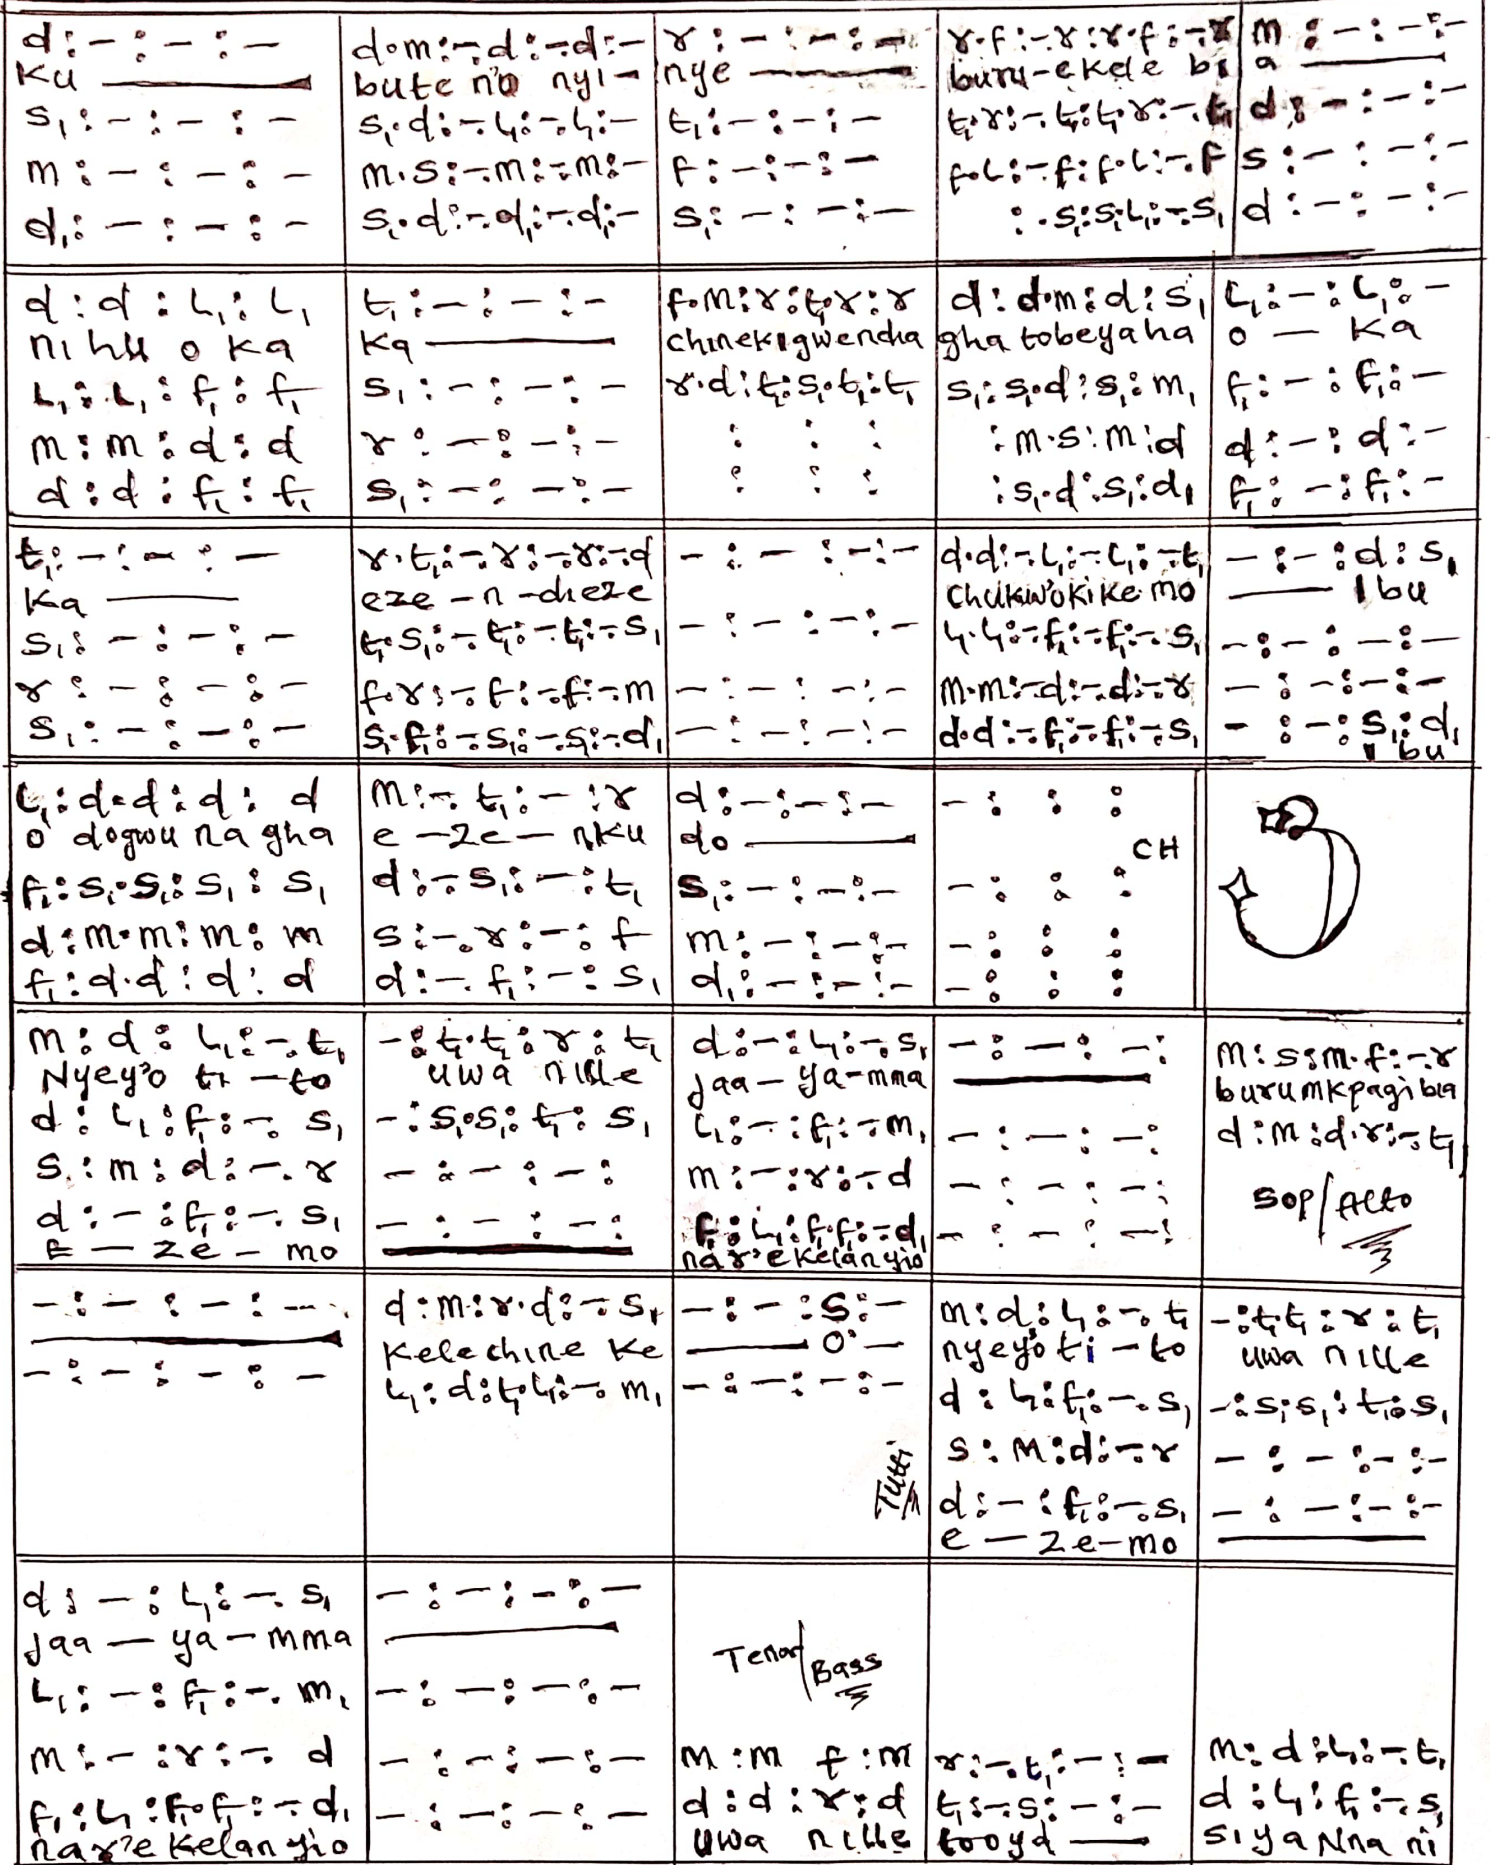 d : – : – : –
Ku
s₁ : – : – : –
m : – : – : –
d₁ : – : – : –
d.m : – . d : – . d : –
bute n'o nyi –
s₁.d : – . l₁ : – . l₁ : –
m.s : – . m : – . m : –
s₁.d : – . d₁ : – . d₁ : –
r : – : – : –
nye
t₁ : – : – : –
f : – : – : –
s₁ : – : – : –
r.f : – . r : r.f : – . r
buru-ekele bi
t₁.r : – . t₁ : t₁.r : – . t₁
f.l : – . f : f.l : – . f
: . s₁ : s₁.l₁ : – . s₁
m : – : – : –
a
d : – : – : –
s : – : – : –
d : – : – : –
d : d : l₁ : l₁
ni hu o ka
l₁ : l₁ : f₁ : f₁
m : m : d : d
d : d : f₁ : f₁
t₁ : – : – : –
Ka
s₁ : – : – : –
r : – : – : –
s₁ : – : – : –
f.m : r : t₁.r : r
chinekigwendia
r.d : t₁ : s₁.t₁ : t₁
: : :
: : :
d : d.m : d : s₁
gha tobeyaha
s₁ : s₁.d : s₁ : m₁
: m.s : m : d
: s₁.d : s₁ : d₁
l₁ : – : l₁ : –
o — Ka
f₁ : – : f₁ : –
d : – : d : –
f₁ : – : f₁ : –
t₁ : – : – : –
Ka
s₁ : – : – : –
r : – : – : –
s₁ : – : – : –
r.t₁ : – . r : – . r : – . d
eze – n – dieze
t₁.s₁ : – . t₁ : – . t₁ : – . s₁
f.r : – . f : – . f : – . m
s₁.f₁ : – . s₁ : – . s₁ : – . d₁
– : – : – : –
– : – : – : –
– : – : – : –
– : – : – : –
d.d : – . l₁ : – . l₁ : – . t₁
Chukw'okike mo
l₁.l₁ : – . f₁ : – . f₁ : – . s₁
m.m : – . d : – . d : – . r
d.d : – . f₁ : – . f₁ : – . s₁
– : – : d : s₁
I bu
– : – : – : –
– : – : – : –
– : – : s₁ : d₁
I bu
l₁ : d.d : d : d
o' dogwu na gha
f₁ : s₁.s₁ : s₁ : s₁
d : m.m : m : m
f₁ : d.d : d : d
m : – . t₁ : – : r
e – ze – nku
d : – . s₁ : – : t₁
s : – . r : – : f
d : – . f₁ : – : s₁
d : – : – : –
do
s₁ : – : – : –
m : – : – : –
d₁ : – : – : –
– : : :
CH
– : : :
– : : :
– : : :
m : d : l₁ : – . t₁
Nyey'o ti – to
d : l₁ : f₁ : – . s₁
s : m : d : – . r
d : – : f₁ : – . s₁
E — ze – mo
– : t₁.t₁ : r : t₁
uwa nille
– : s₁.s₁ : t₁ : s₁
– : – : – :
– : – : – :
d : – : l₁ : – . s₁
jaa – ya – mma
l₁ : – : f₁ : – . m₁
m : – : r : – . d
f₁ : l₁ : f₁.f₁ : – . d₁
nar'e kelan yio
– : – : – :
– : – : – :
– : – : – :
– : – : – :
m : s : m.f : – . r
burumkpagi bia
d : m : d.r : – . t₁
SOP/Alto
– : – : – : –
– : – : – : –
d : m : r.d : – . s₁
Kelechine Ke
l₁ : d : t₁.l₁ : – . m₁
– : – : s : –
O' –
– : – : – : –
Tutti
m : d : l₁ : – . t₁
nyeyo ti – to
d : l₁ : f₁ : – . s₁
s : m : d : – . r
d : – : f₁ : – . s₁
e — ze – mo
– : t₁.t₁ : r : t₁
uwa nille
– : s₁.s₁ : t₁ : s₁
– : – : – : –
– : – : – : –
d : – : l₁ : – . s₁
jaa — ya – mma
l₁ : – : f₁ : – . m₁
m : – : r : – . d
f₁ : l₁ : f₁.f₁ : – . d₁
nar'e kelan yio
– : – : – : –
– : – : – : –
– : – : – : –
– : – : – : –
Tenor/Bass
m : m f : m
d : d : r : d
uwa nille
r : – . t₁ : – : –
t₁ : – . s₁ : – : –
tooya
m : d : l₁ : – . t₁
d : l₁ : f₁ : – . s₁
siya Nna ni